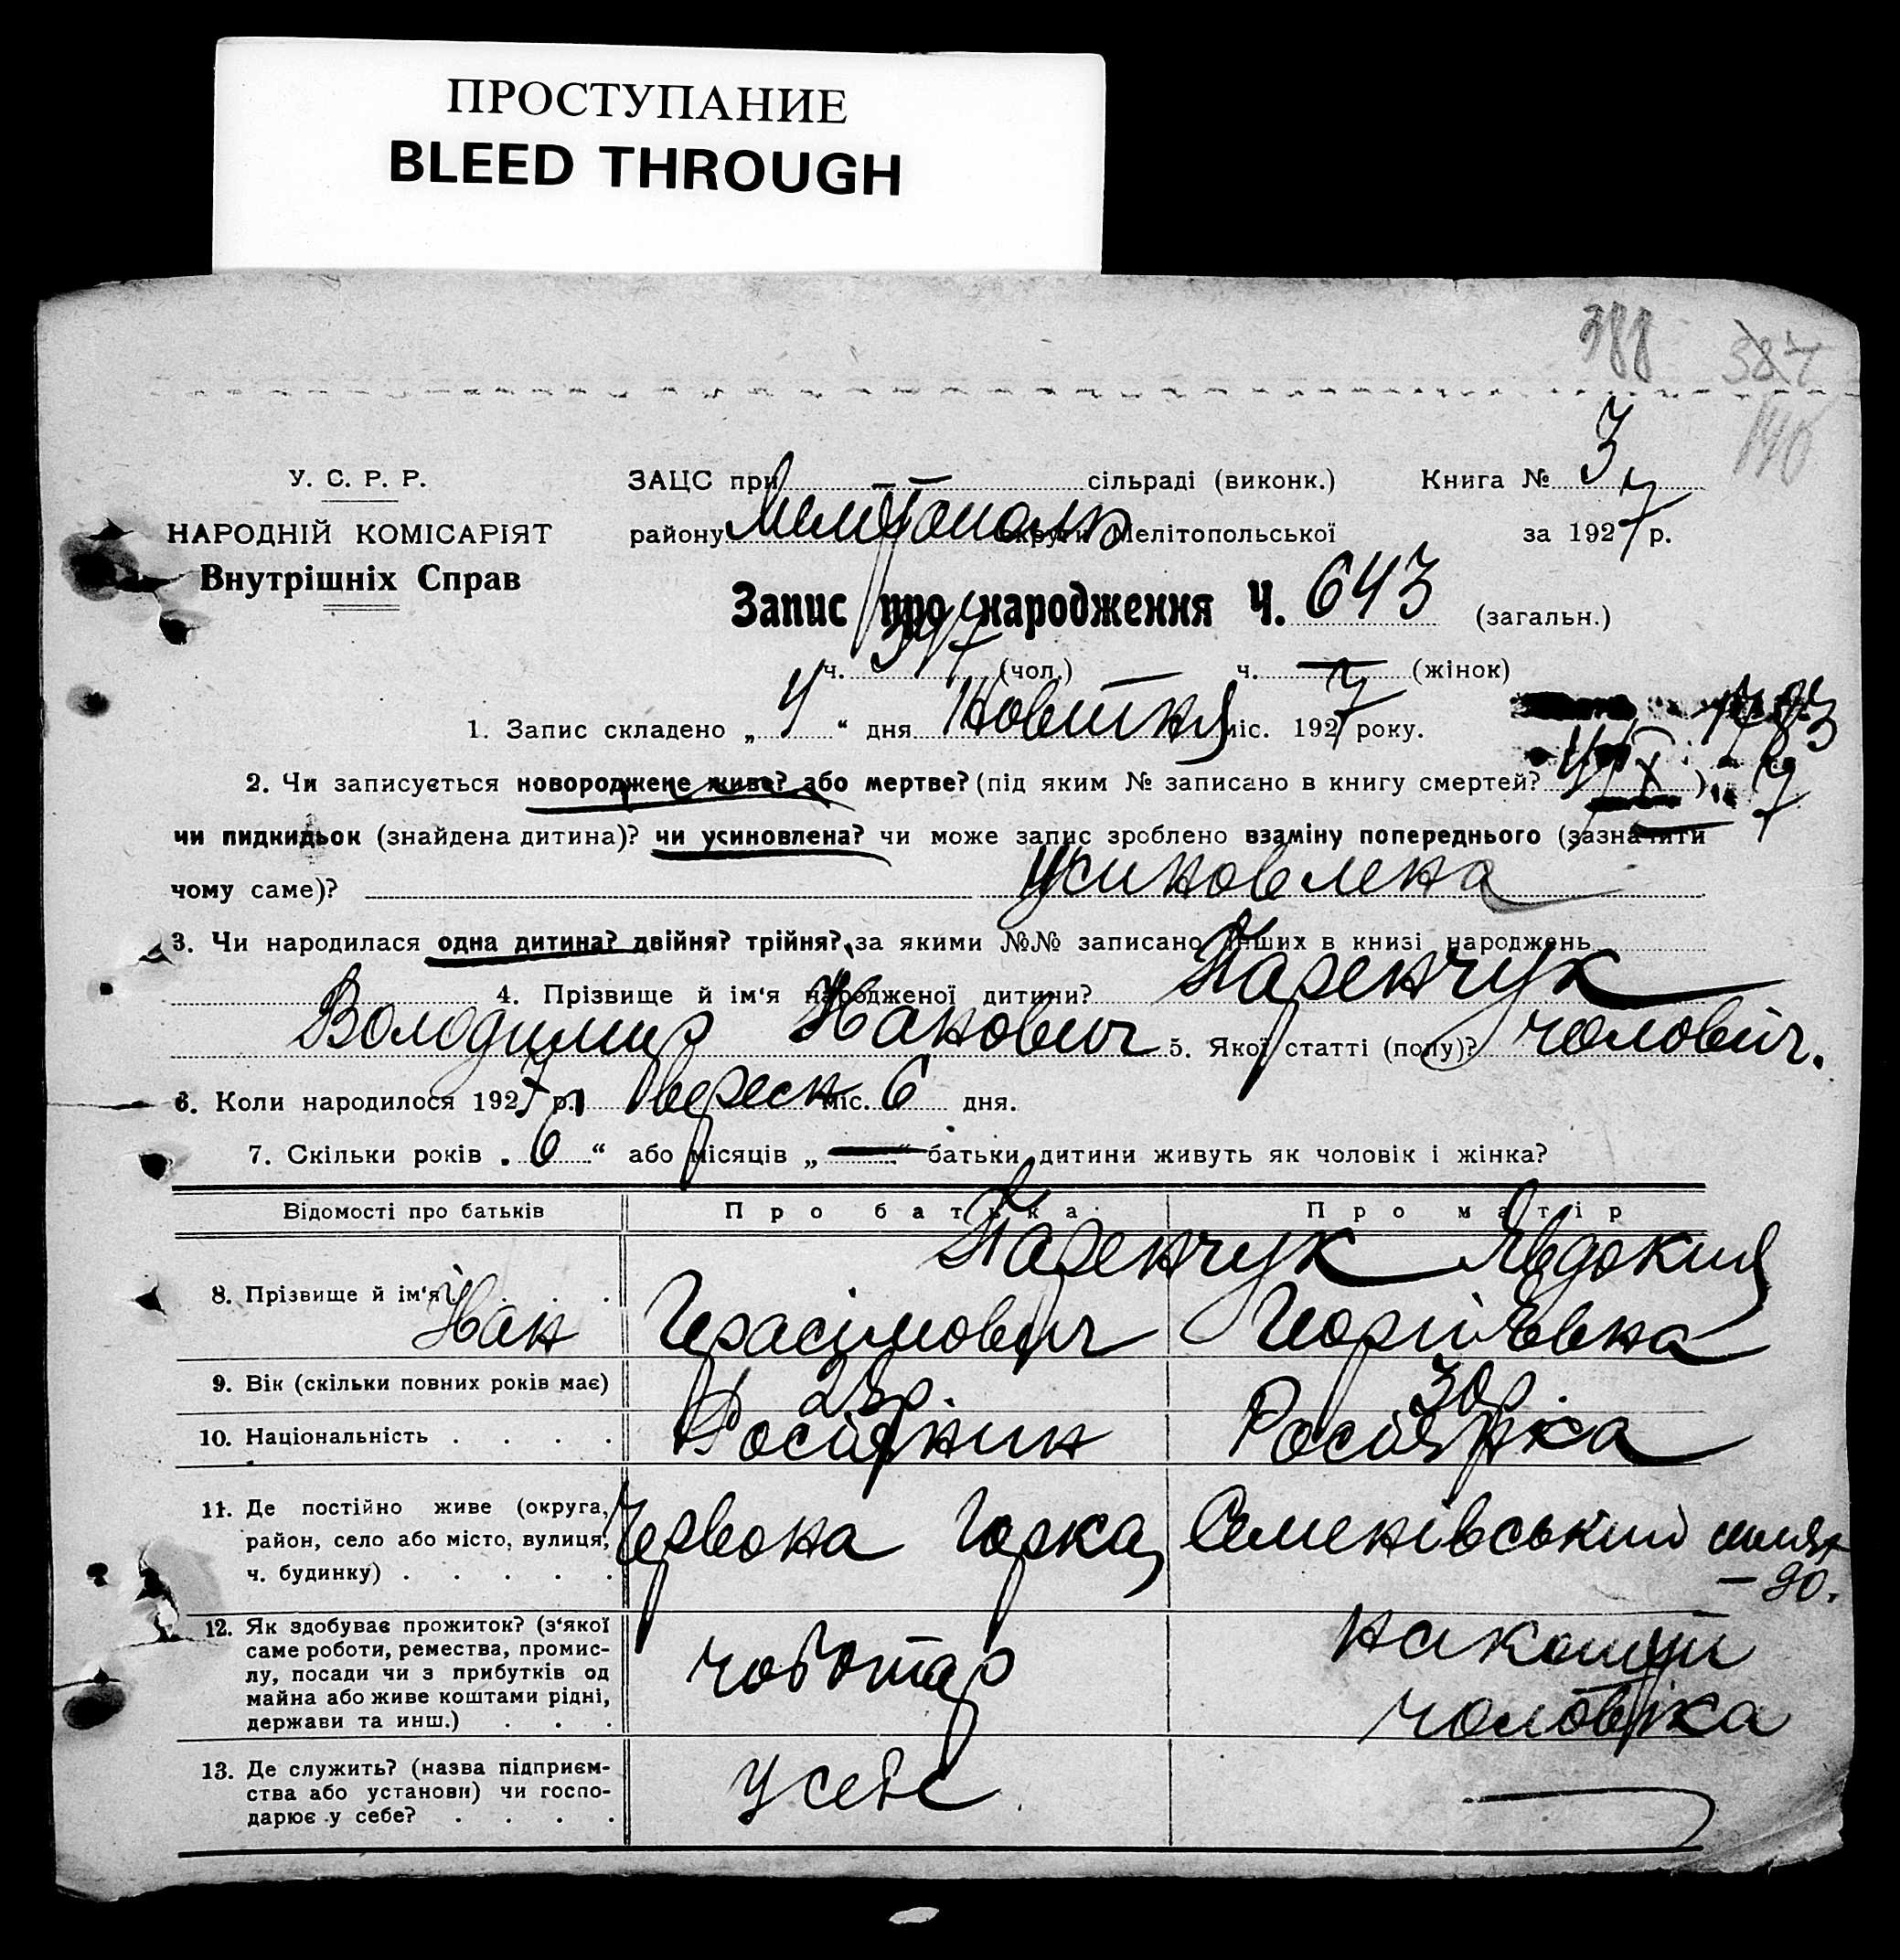 ПРОСТУПАНИЕ
BLEED THROUGH
388 387
140
У. С. Р. Р.
НАРОДНІЙ КОМІСАРІЯТ
Внутрішніх Справ
ЗАЦС при — сільраді (виконк.) Книга № 3
району Мелітополь округи Мелітопольської за 1927 р.
Запис про народження Ч. 643 (загальн.)
ч. 347 (чол.) ч. — (жінок)
1. Запис складено „ 4 “ дня Жовтня міс. 1927 року.
2. Чи записується новороджене живе? або мертве? (під яким № записано в книгу смертей? )
чи пидкидьок (знайдена дитина)? чи усиновлена? чи може запис зроблено взаміну попереднього (зазначити
чому саме)? усиновлена
3. Чи народилася одна дитина? двійня? трійня? за якими №№ записано інших в книзі народжень
4. Прізвище й ім'я народженої дитини? Таренчук
Володимир Іванович 5. Якої статті (полу)? чоловіч.
6. Коли народилося 1927 р. вересн міс. 6 дня.
7. Скільки років „ 6 “ або місяців „ — “ батьки дитини живуть як чоловік і жінка?
Відомості про батьків Про батька Про матір
Таренчук Явдокия
8. Прізвище й ім'я Іван Герасімович Георгіївна
9. Вік (скільки повних років має) 28р. 30р.
10. Національність . . . . Росіянин Росіянка
11. Де постійно живе (округа,
район, село або місто, вулиця,
ч. будинку) . . . . .
Червона Горка, Семенівський шлях
— 90.
12. Як здобуває прожиток? (з'якої
саме роботи, ремества, промис-
лу, посади чи з прибутків од
майна або живе коштами рідні,
держави та инш.) . . .
чоботар
на кошти
чоловіка
13. Де служить? (назва підприєм-
ства або установи) чи госпо-
дарює у себе? . . . .
у себе —